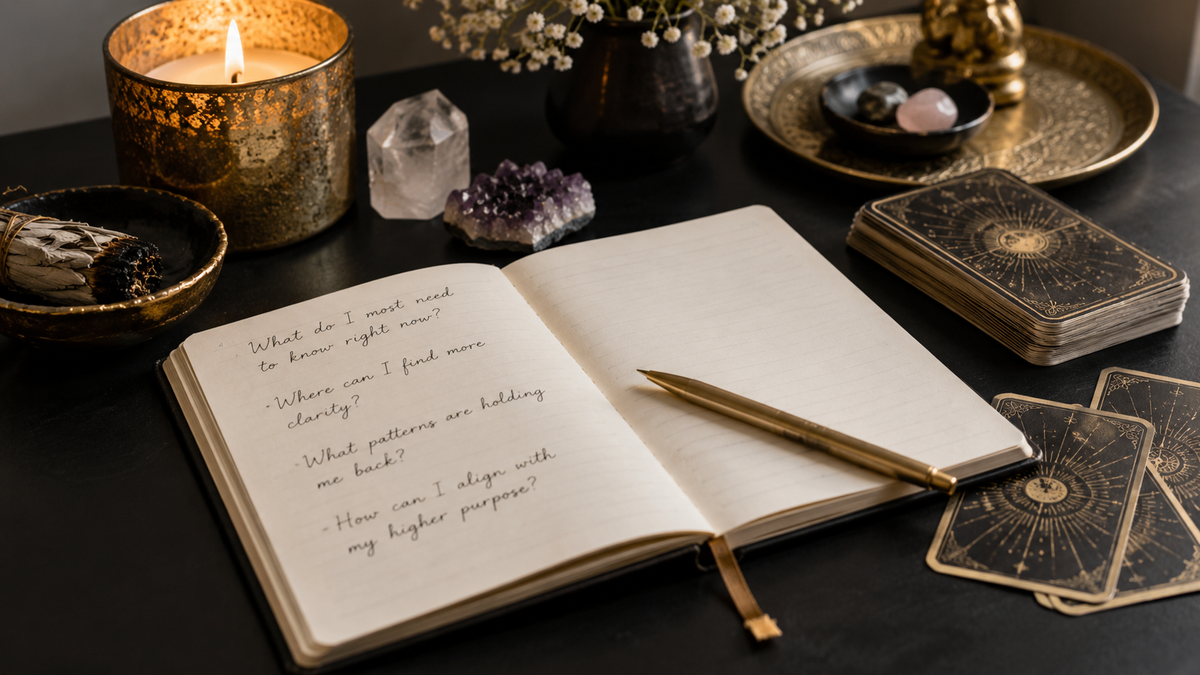 What do I most need
to know right now?
- Where can I find more
clarity?
- What patterns are holding
me back?
- How can I align with
my higher purpose?